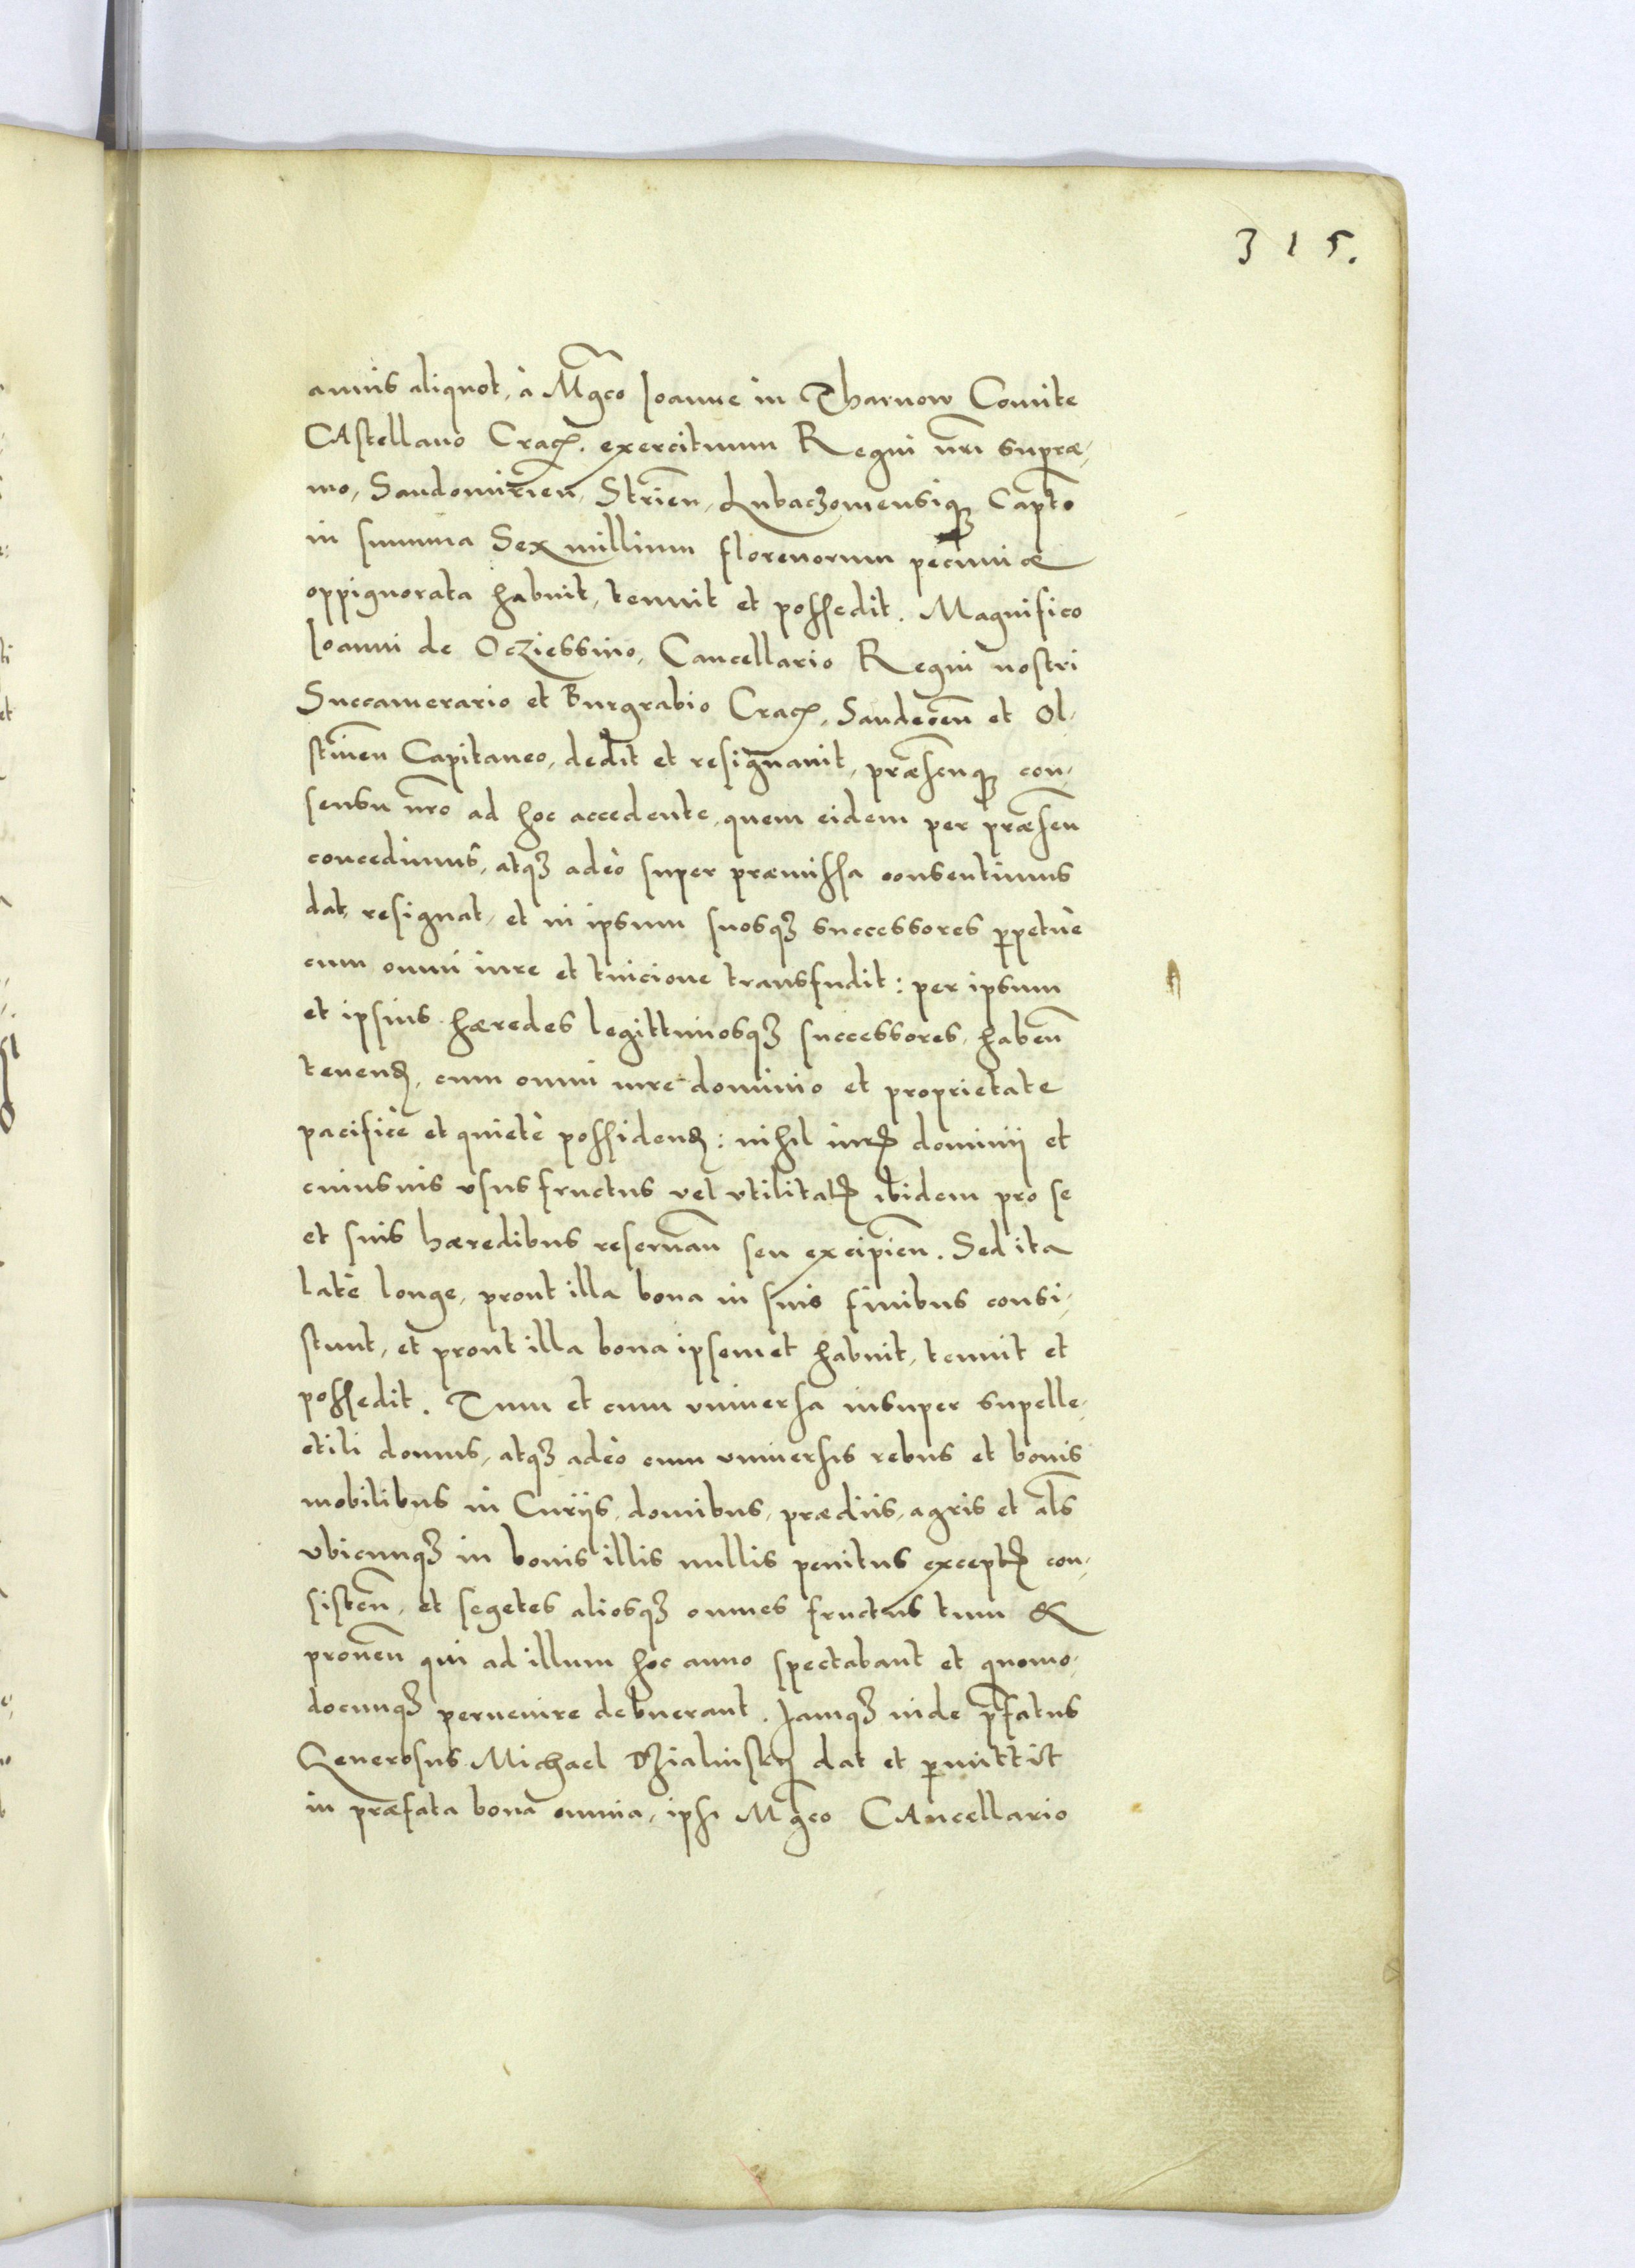 315.
annis aliquot, à Mgco Ioanne in Tharnow Comite
CAstellano Crac̃. exercituum Regni nr̃i supræ,
mo, Sandomirien̄, Strien̄, Lubaczoviensiq₃ Capto
in summa Sex millium florenorum pecuniæ
oppignorata habuit, tenuit et possedit. Magnifico
Ioanni de Ocziessino, Cancellario Regni nostri
Succamerario et Burgrabio Crac̃, Sandecen̄ et Ol,
stinen̄ Capitaneo, dedit et resignauit, præsenq₃ con,
sensu nr̃o ad hoc accedente, quem eidem per præsen̄
concedimus, atq₃ adeò super præmissa consentimus
dat, resignat, et in ipsum suosq₃ successores ꝑpetuè
cum omni iure et tuicione transfudit: per ipsum
et ipsius hæredes legittimosq₃ successores, haben̄
tenen̄, cum omni iure dominio et proprietate
pacificè et quietè possiden̄: nihil iurꝭ dominij et
cuiusuis vsus fructus vel vtilitatꝭ ibidem pro se
et suis hæredibus reseruan̄ seu excipien̄. Sed ita
latè longe, prout illa bona in suis finibus consi,
stunt, et prout illa bona ipsemet habuit, tenuit et
possedit. Tum et cum vniuersa insuper supelle,
ctili domus, atq₃ adeò cum vniuersis rebus et bonis
mobilibus in Curijs, domibus, prædiis, agris et al̄s
vbicunq₃ in bonis illis nullis penitus exceptꝭ con,
sisten̄, et segetes aliosq₃ omnes fructus tum &
prouen̄ qui ad illum hoc anno spectabant et quomo,
documq₃ peruenire debuerant. Iamq₃ inde p̄fatus
Generosus Michael Dzialinsky dat et ꝑmittit
in præfata bona omnia, ipsi Mgco CAncellario